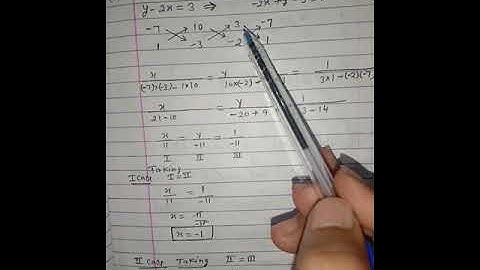 y - 2x = 3 ⇒ -2x + y
-7 10 3 -7
1 -3 -2 1
x/((-7)×(-3) - 1×10) = y/(10×(-2) - = 1/(3×1-(-2)(-7)
x/(21-10) = y/(-20+9 = 1/(3-14
x/11 = y/-11 = 1/-11
I II III
I Case Taking I = II
x/11 = 1/-11
x = 11/-11
x = -1
II Case Taking II = III